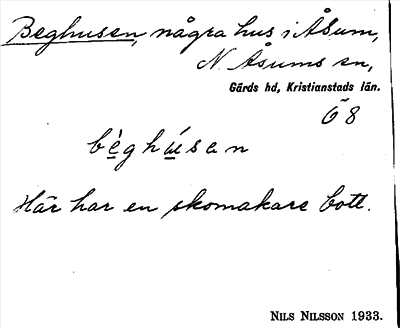 Beghusen, några hus i Åsum,
N. Åsums sn,
Gärds hd, Kristianstads län.
Ö 8
bèghúsan
Här har en skomakare bott.
NILS NILSSON 1933.